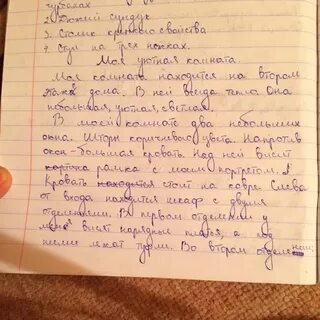 чурбаках
2. Дюжий сундук
3. Столик крепкого свойства
4. Стул на трёх ножках.
Моя уютная комната.
Моя комната находится на втором
этаже дома. В ней всегда тепло. Она
небольшая, уютная, светлая.
В моей комнате два небольших
окна. Шторы коричневого цвета. Напротив
окон - большая кровать. Над ней висит
картина рамка с моим портретом.
Кровать находится стоит на ковре. Слева
от входа находится шкаф с двумя
отделениями. В первом отделении у
меня висят нарядные платья, а под
ними лежат туфли. Во втором отделении